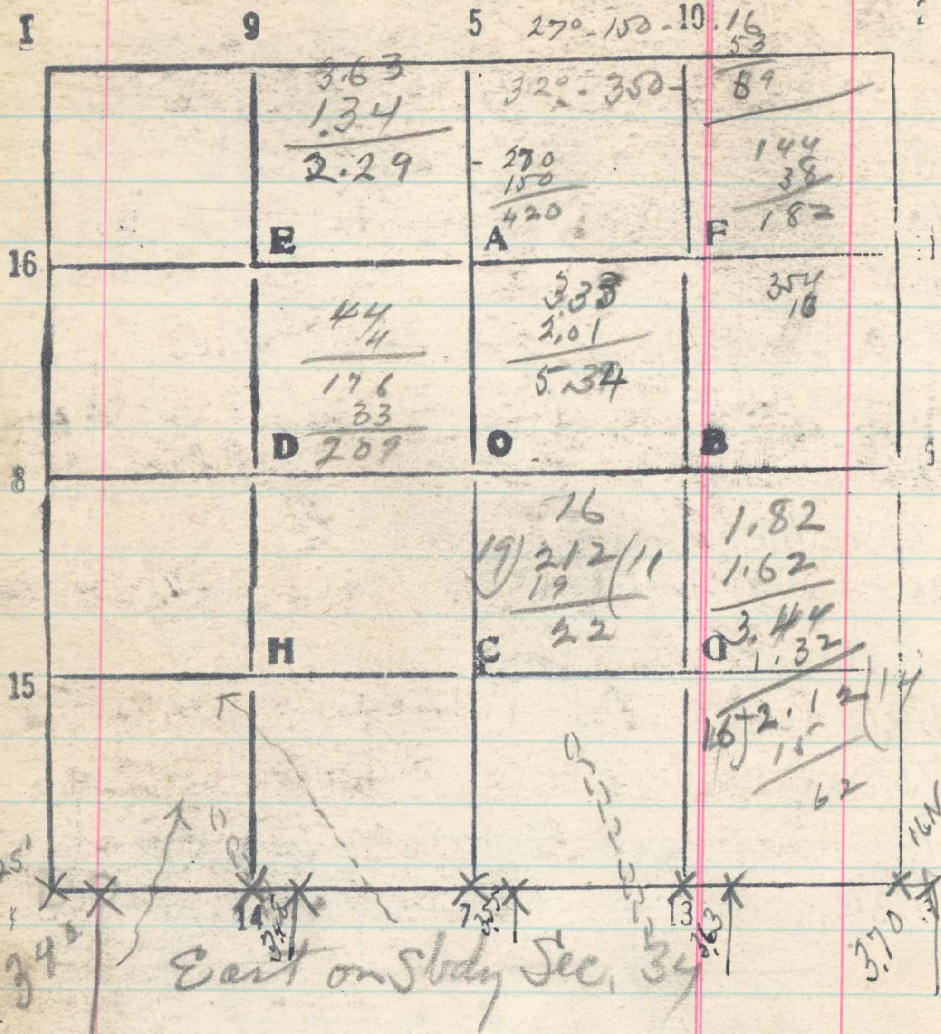 I 9 5 10 2
27° - 150 - .16
53
89
3.63
1.34
2.29
32° - 350 -
- 270
150
420
144
38
182
E A F
16
44
4
176
33
209
3.33
2.01
5.34
354
18
D O B
8 6
16
19) 212 (11
19
22
1.82
1.62
3.44
1.32
16) 2.12 (14
15
62
H C G
15
16N
25'
14 7 13
355 363 3.70
East on S bdy Sec. 34